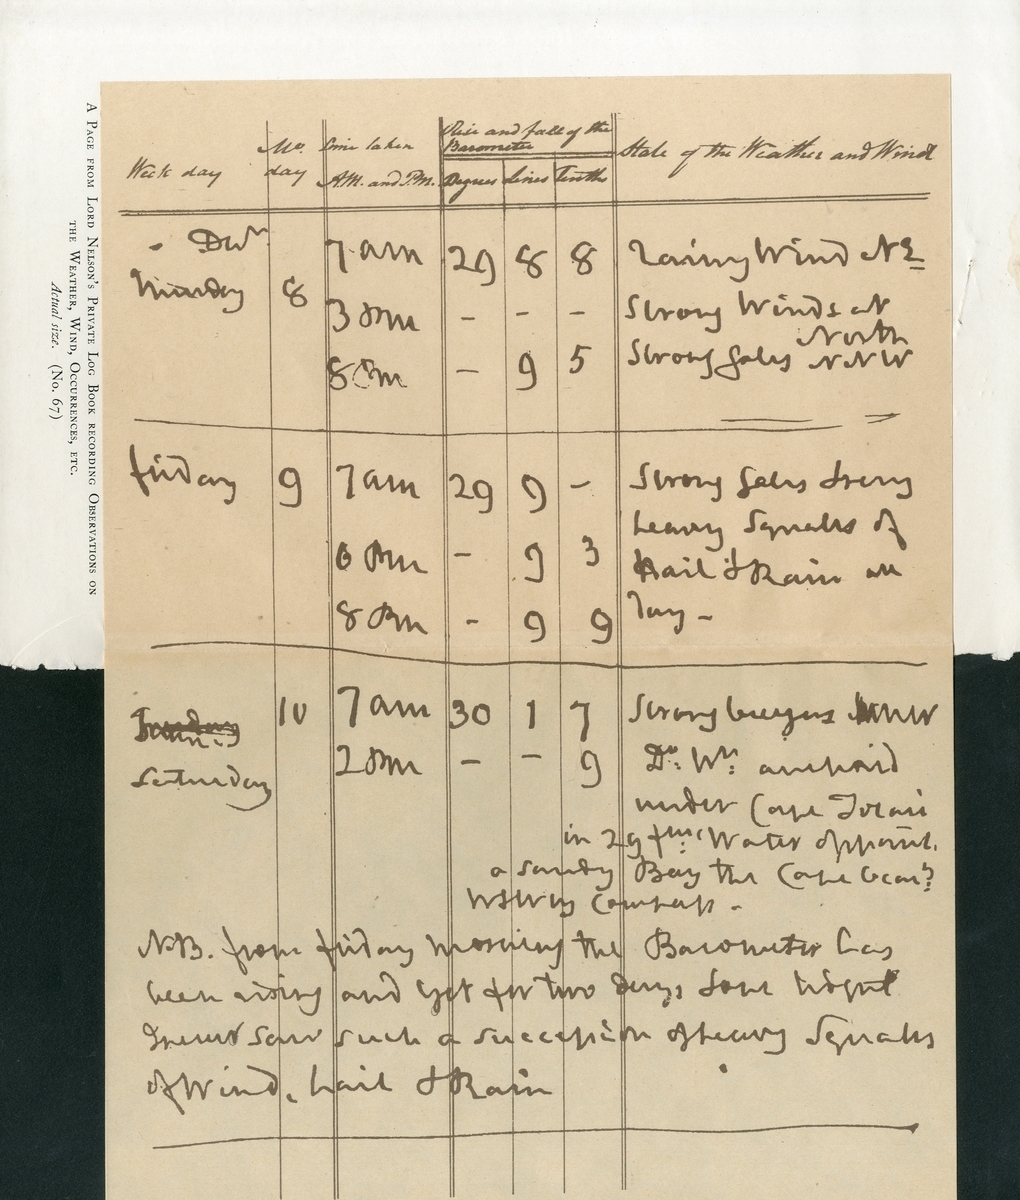 A Page from Lord Nelson's Private Log Book recording Observations on
the Weather, Wind, Occurrences, etc.
Actual size. (No. 67)
Week day Mo. day Time taken A.M. and P.M. Rise and fall of the Barometer Degrees Lines Tenths State of the Weather and Wind
Decr
Thursday 8 7 am 29 8 8 rainy Wind NE
3 Pm - - - Strong Winds at
North
8 Pm - 9 5 Strong Gales NNW
friday 9 7 am 29 9 - Strong Gales & very
heavy Squalls of
6 Pm - 9 3 Hail & Rain all
8 Pm - 9 9 day -
Sunday 10 7 am 30 1 7 Strong breezes NNW
Saturday 2 Pm - - 9 Do. Wr. anchored
under Cape
in 29 fms Water opposite
a sandy Bay the Cape bears
WSW by Compass -
NB. from friday morning the Barometer has
been rising and yet for two days & one Night
I never saw such a succession of heavy Squalls
of Wind, hail & Rain